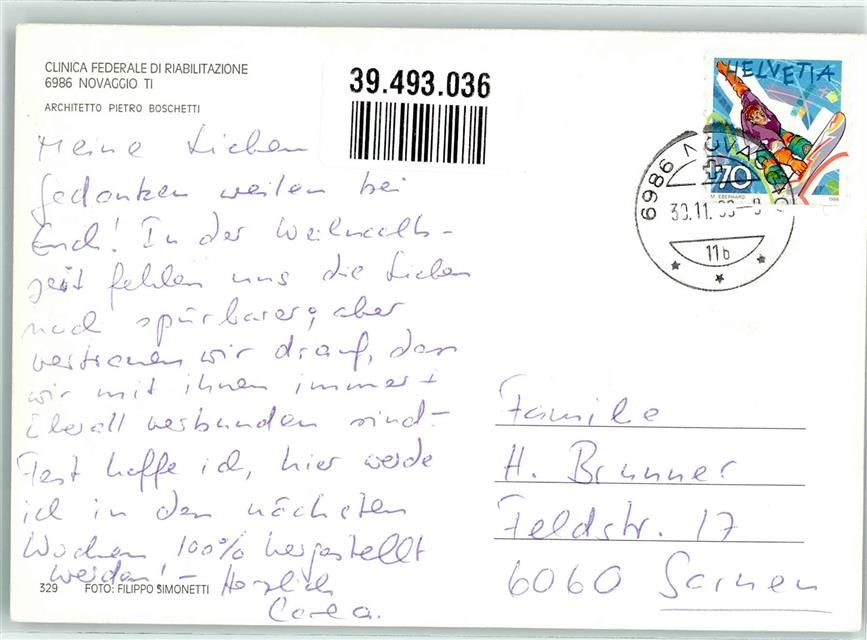 CLINICA FEDERALE DI RIABILITAZIONE
6986 NOVAGGIO TI
ARCHITETTO PIETRO BOSCHETTI
39.493.036
HELVETIA
70
M. EBERHARD
1998
6986 NOVAGGIO
30.11.
11b
Meine Lieben
Gedanken weilen bei
Euch! In der Weihnachts-
zeit fehlen uns die Lieben
noch spürbarer, aber
vertrauen wir drauf, dass
wir mit ihnen immer +
überall verbunden sind -
Fest hoffe ich, hier werde
ich in den nächsten
Wochen 100% hergestellt
werden! - Herzlich
Carla.
329 FOTO: FILIPPO SIMONETTI
Familie
H. Brunner
Feldstr. 17
6060 Sarnen